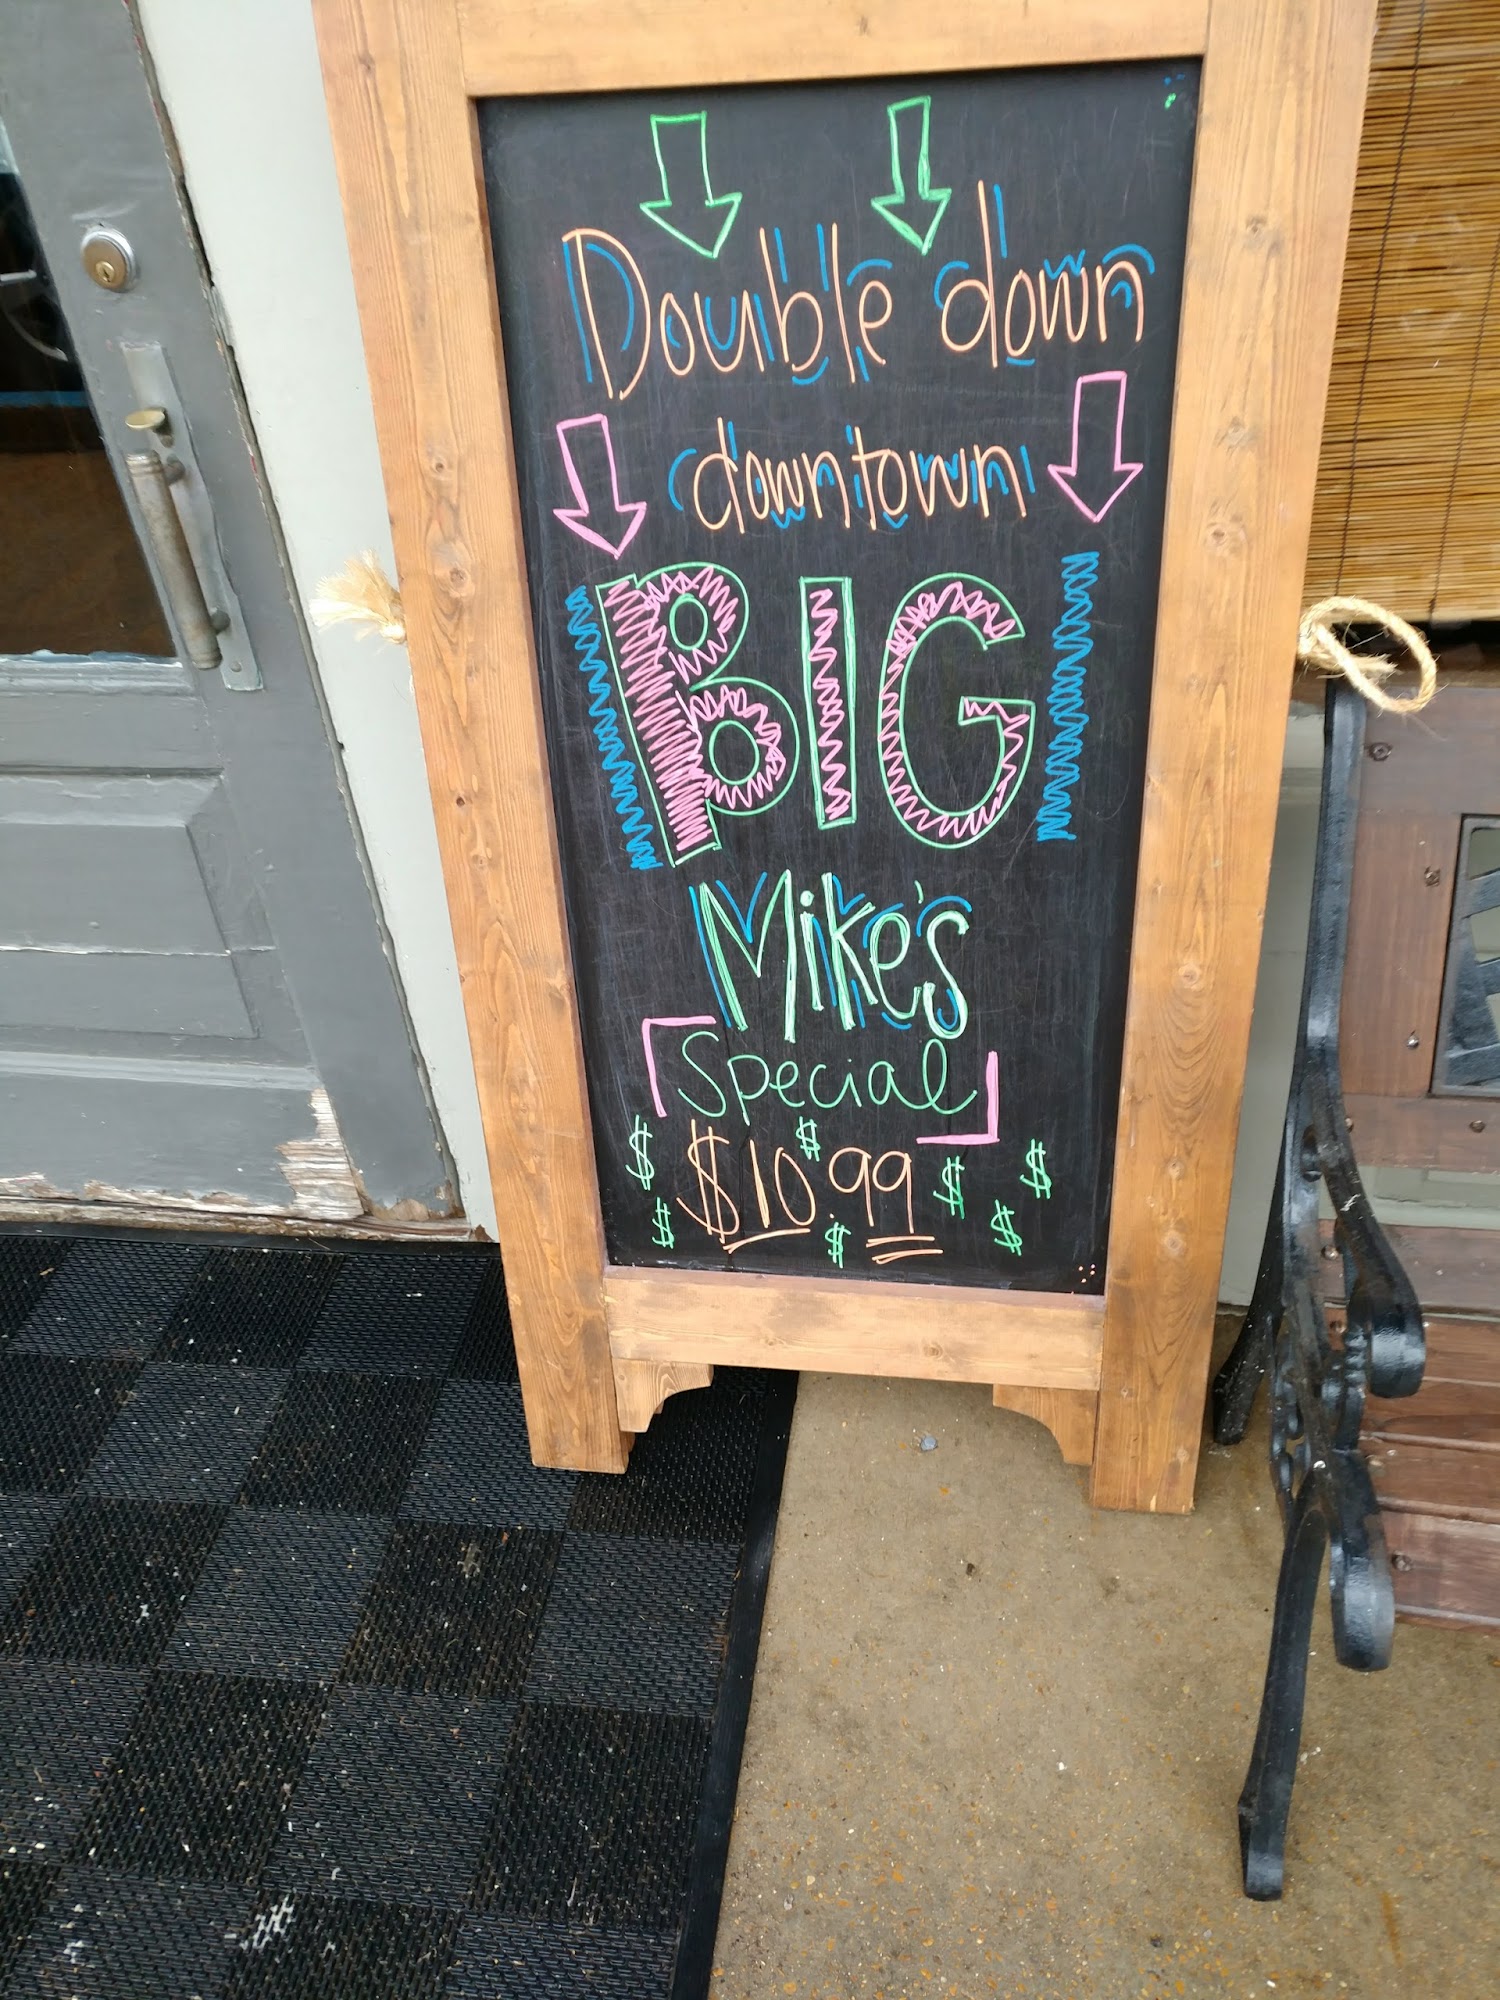 Double down
downtown
BIG
Mike's
Special
$10.99